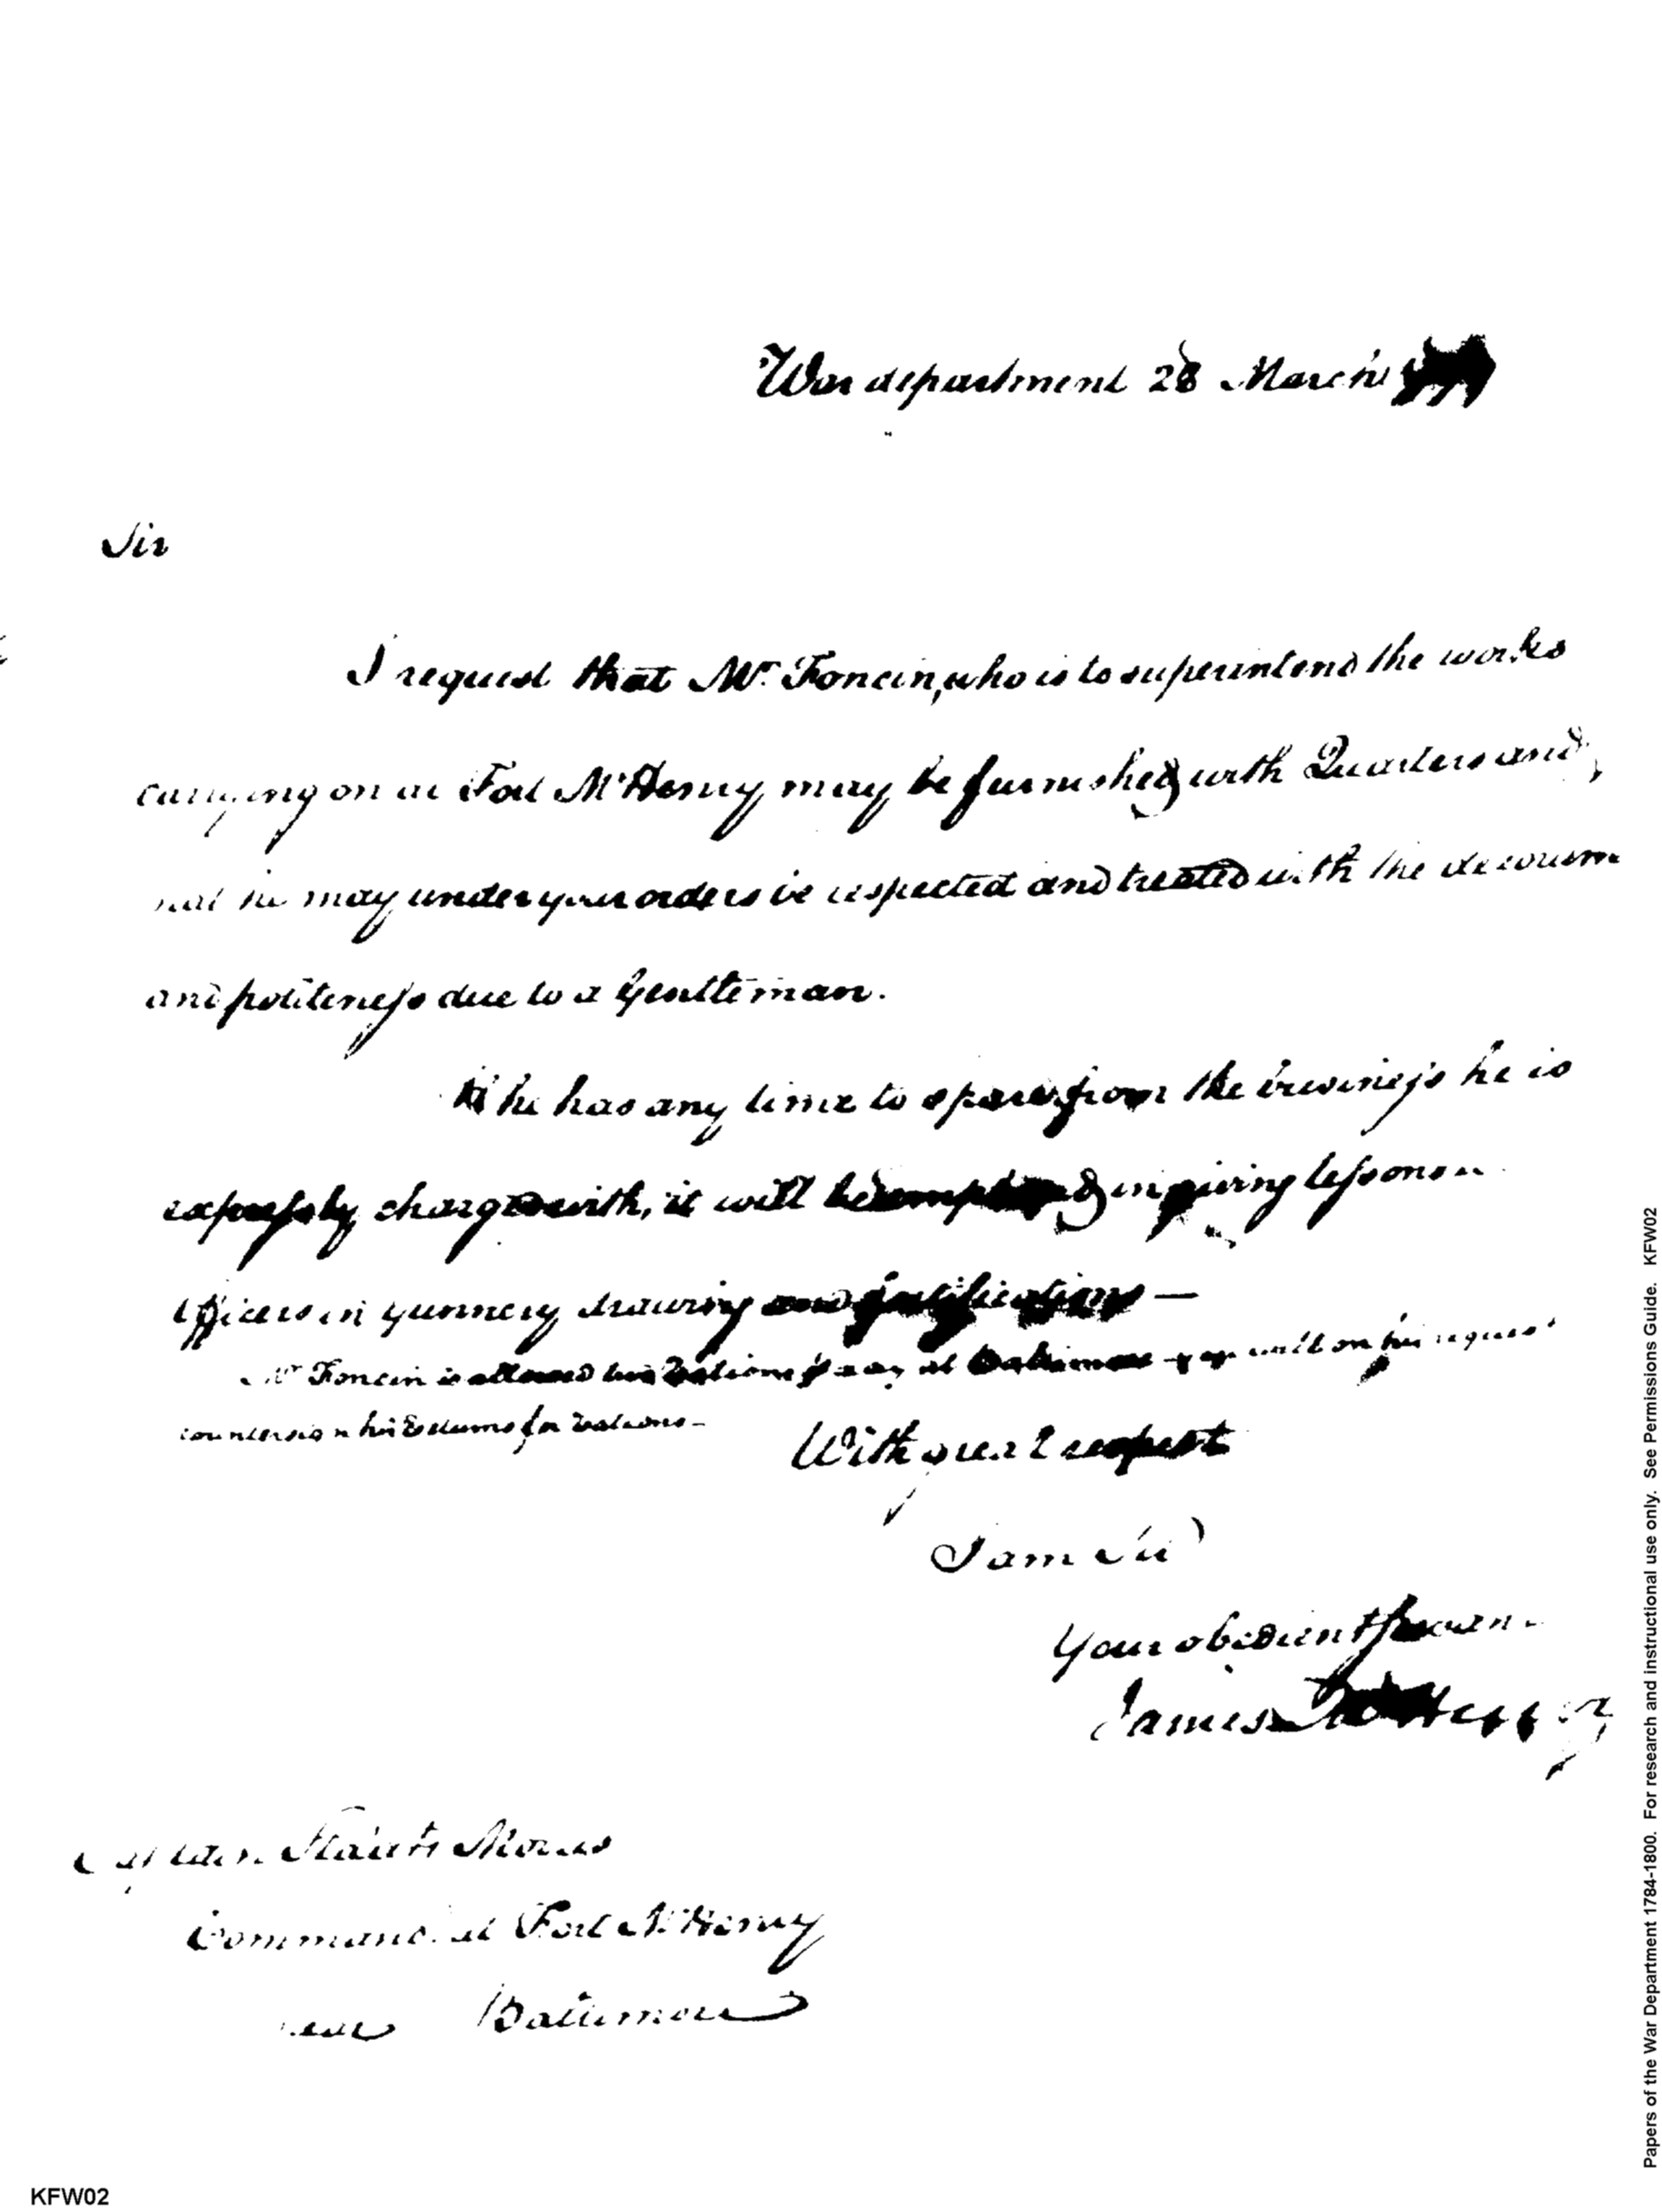 War department 28 March
Sir
I request that Mr. Foncin, who is to superintend the works
carrying on at Fort McHenry may be furnished with Quarters and
that he may under your orders be respected and treated with the decorum
and politeness due to a Gentleman.
If he has any time to spare from the business he is
expressly charged with, it will be employed in giving lessons
officers in gunnery drawing and fortification —
Mr Foncin is allowed two Rations a day at Baltimore you will on his request
countersign his Returns for Rations —
With great respect
I am Sir
Your obedient servant
James McHenry
Captain Staats Morris
Command. at Fort McHenry
near Baltimore
KFW02
Papers of the War Department 1784-1800. For research and instructional use only. See Permissions Guide. KFW02